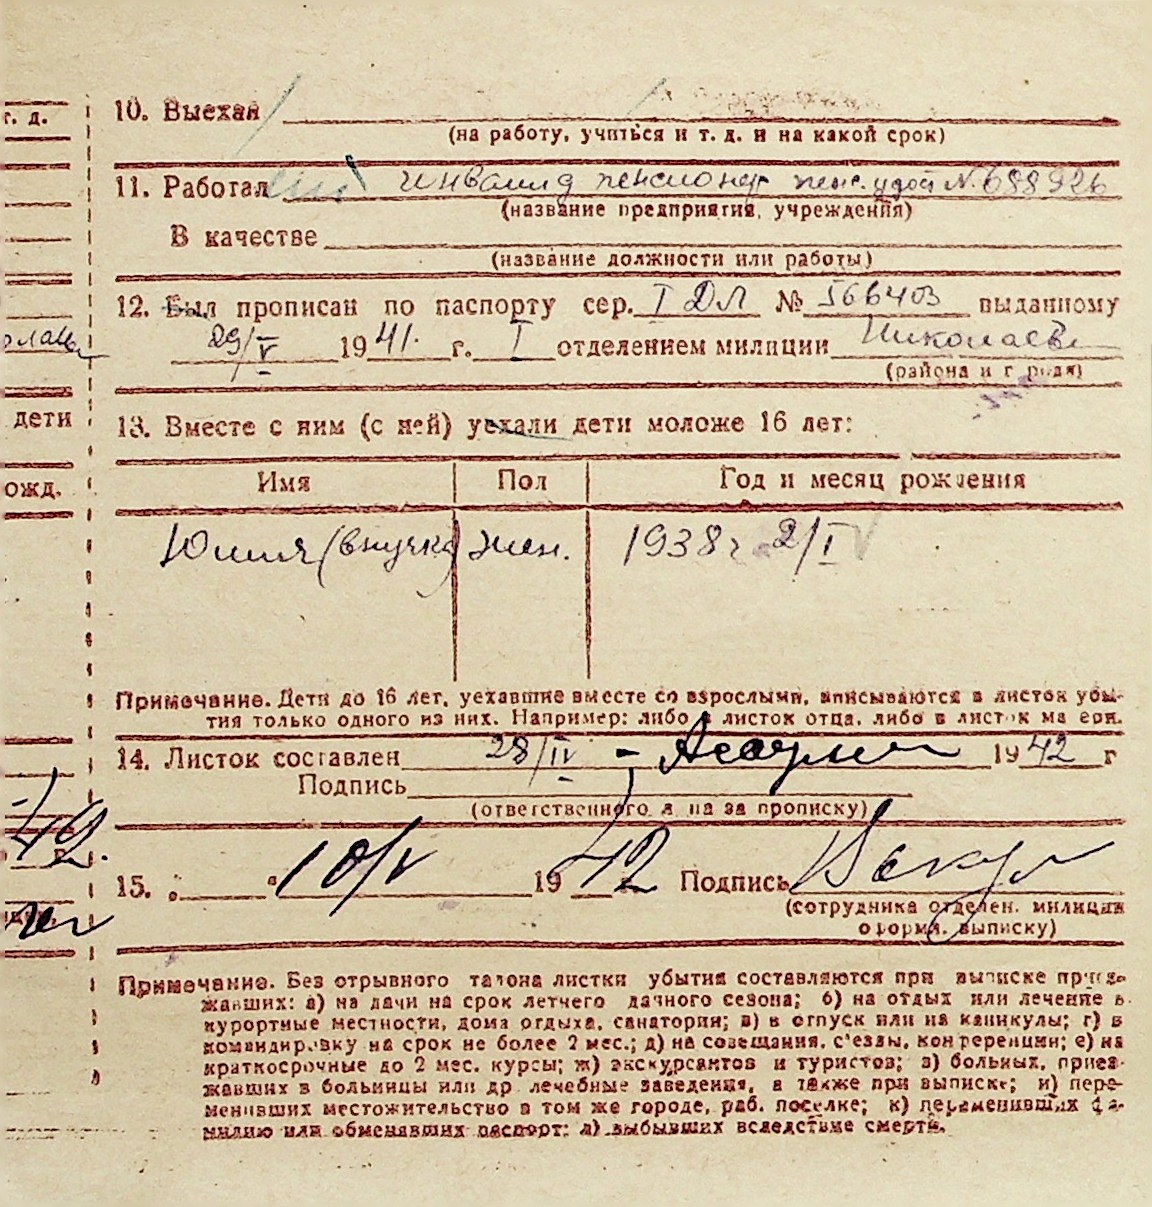 г. д.
10. Выехал
(на работу, учиться и т. д. и на какой срок)
11. Работал инвалид пенсионер пенс. удост N. 688926
(название предприятия, учреждения)
В качестве
(название должности или работы)
12. Был прописан по паспорту сер. I ДЛ № 566403 выданному
29/V 1941. г. I отделением милиции Николаев
(района и города)
дети
13. Вместе с ним (с ней) уехали дети моложе 16 лет:
ожд.
Имя Пол Год и месяц рождения
Юлия (внучка) жен. 1938 г 2/I
Примечание. Дети до 16 лет, уехавшие вместе со взрослыми, вписываются в листок убы-
тия только одного из них. Например: либо в листок отца, либо в листок матери.
14. Листок составлен 28/IV - 1942 г
Подпись
(ответственного лица за прописку)
42.
15. " " 10/V 1942 Подпись
(сотрудника отделен. милиции
оформ. выписку)
Примечание. Без отрывного талона листки убытия составляются при выписке приез-
жавших: а) на дачи на срок летнего дачного сезона; б) на отдых или лечение в
курортные местности, дома отдыха, санатории; в) в отпуск или на каникулы; г) в
командировку на срок не более 2 мес.; д) на совещания, с'езды, конференции; е) на
краткосрочные до 2 мес. курсы; ж) экскурсантов и туристов; з) больных, приез-
жавших в больницы или др. лечебные заведения, а также при выписке; и) пере-
менивших местожительство в том же городе, раб. поселке; к) переменивших фа-
милию или обменявших паспорт; л) выбывших вследствие смерти.